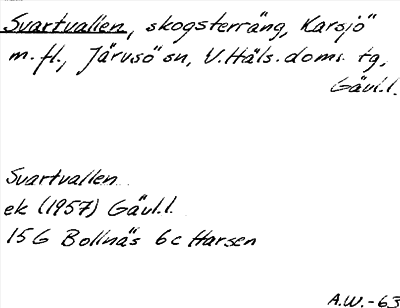 Svartvallen, skogsterräng, Karsjö
m. fl., Järvsö sn, V. Häls. doms. tg,
Gävl.l.
Svartvallen
ek (1957) Gävl.l.
15G Bollnäs 6c Harsen
A.W. -63